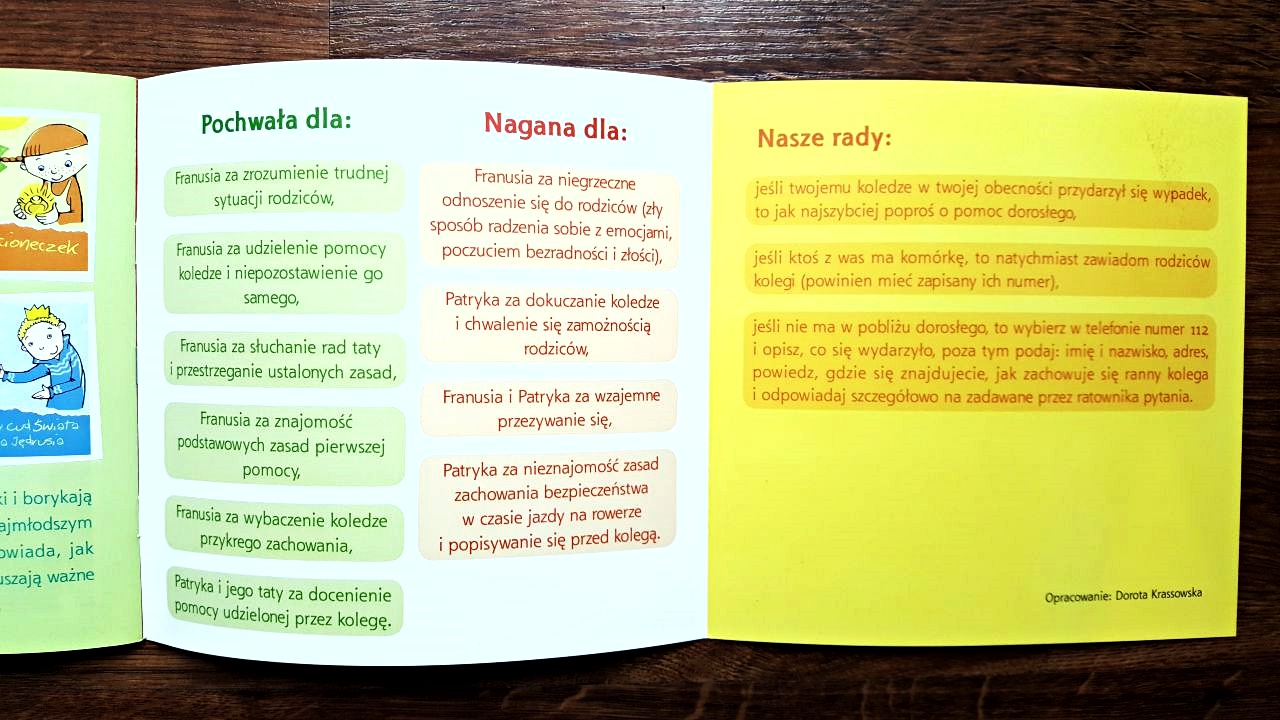 cioneczek
cud Świata
Jędrusia
ki i borykają
ajmłodszym
owiada, jak
uszają ważne
Pochwała dla:
Franusia za zrozumienie trudnej
sytuacji rodziców,
Franusia za udzielenie pomocy
koledze i niepozostawienie go
samego,
Franusia za słuchanie rad taty
i przestrzeganie ustalonych zasad,
Franusia za znajomość
podstawowych zasad pierwszej
pomocy,
Franusia za wybaczenie koledze
przykrego zachowania,
Patryka i jego taty za docenienie
pomocy udzielonej przez kolegę.
Nagana dla:
Franusia za niegrzeczne
odnoszenie się do rodziców (zły
sposób radzenia sobie z emocjami,
poczuciem bezradności i złości),
Patryka za dokuczanie koledze
i chwalenie się zamożnością
rodziców,
Franusia i Patryka za wzajemne
przezywanie się,
Patryka za nieznajomość zasad
zachowania bezpieczeństwa
w czasie jazdy na rowerze
i popisywanie się przed kolegą.
Nasze rady:
jeśli twojemu koledze w twojej obecności przydarzył się wypadek,
to jak najszybciej poproś o pomoc dorosłego,
jeśli ktoś z was ma komórkę, to natychmiast zawiadom rodziców
kolegi (powinien mieć zapisany ich numer),
jeśli nie ma w pobliżu dorosłego, to wybierz w telefonie numer 112
i opisz, co się wydarzyło, poza tym podaj: imię i nazwisko, adres,
powiedz, gdzie się znajdujecie, jak zachowuje się ranny kolega
i odpowiadaj szczegółowo na zadawane przez ratownika pytania.
Opracowanie: Dorota Krassowska